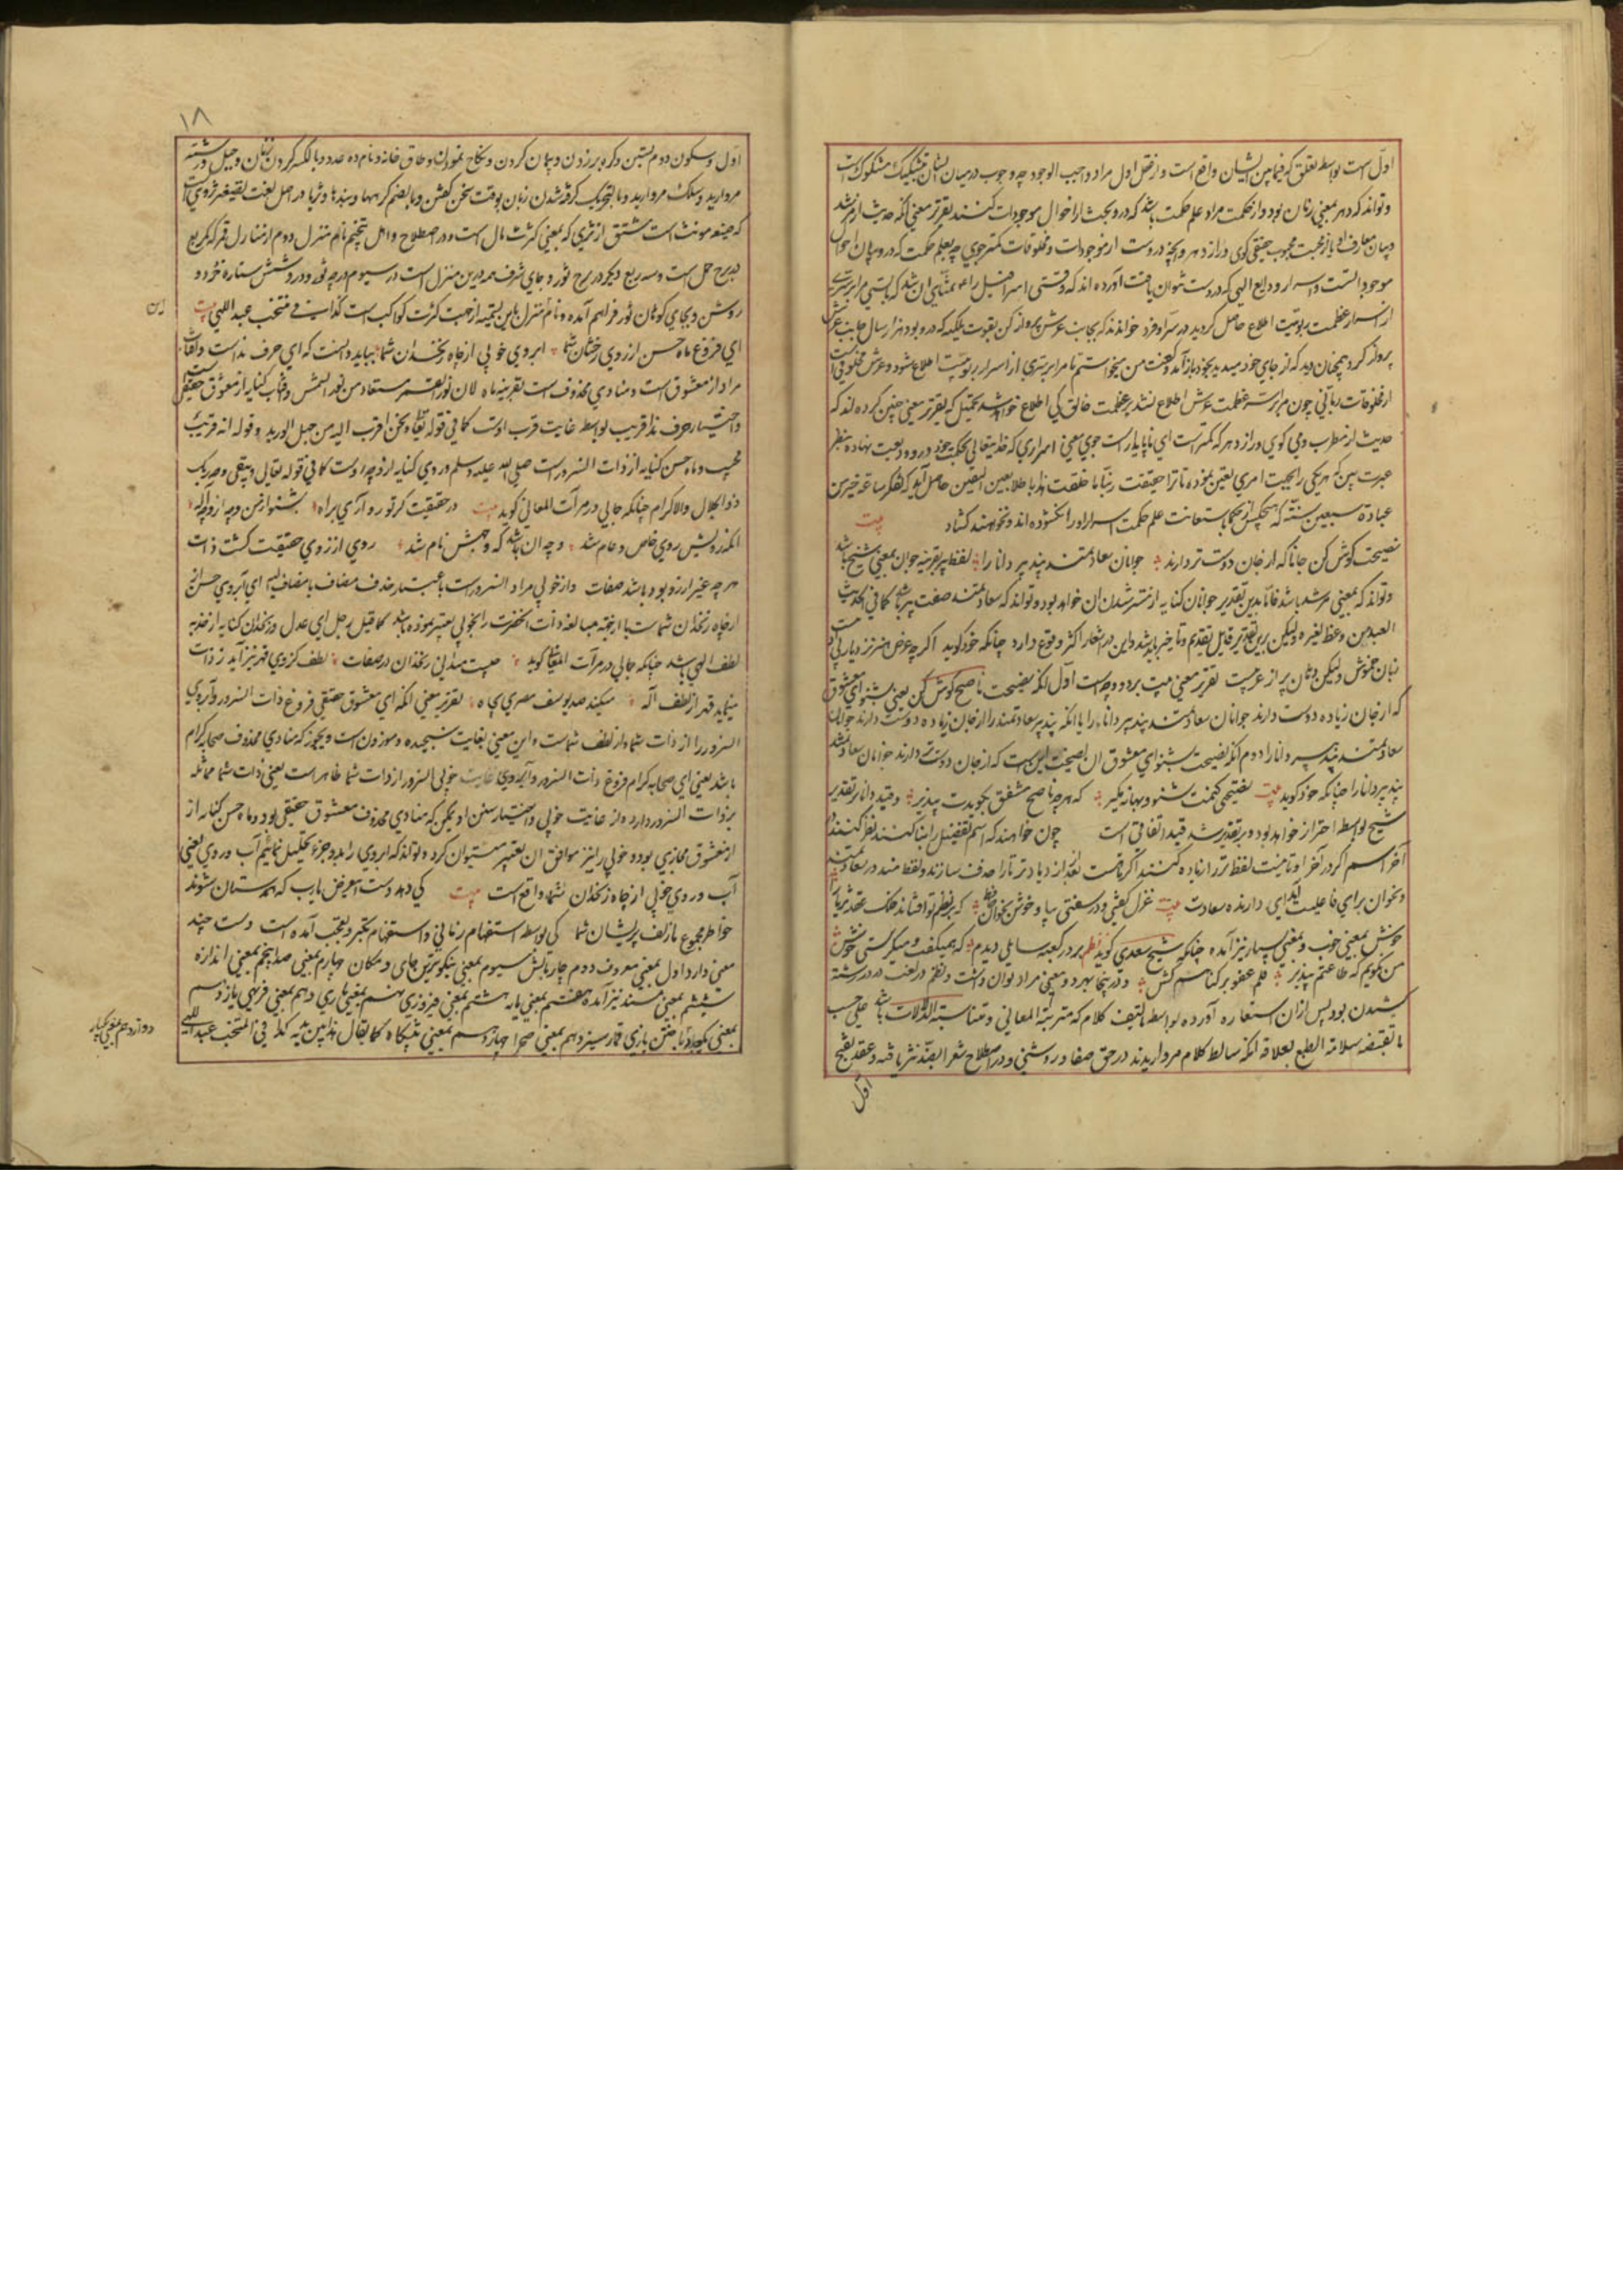 اول است بواسطه تعلق که فیمابین ایشان واقع است و از فعل اول مراد واجب الوجود چه وجوب درمیان ایشان تشکیک مشکوک است
و تواند که دهر بمعنی زمان بود و از حکمت مراد علم حکمت باشد که درو بحث از احوال موجودات کنند تقریر معنی آنکه حدیث از مرشد
و بیان معارف او باز محبت محبوب حقیقی گوی و راز دهر و آنچه دروست از موجودات و مخلوقات کمتر جوی چه بعلم حکمت که درو بیان احوال
موجوداتست و اسرار ودایع الهی که دروست نتوان یافت آورده اند که وقتی اسرافیل را
از اسرار عظمت ربوبیت اطلاع حاصل گردید در سر او فرو خواندند که بجانب عرش پرواز کن بقوت
پرواز کرد همچنان دید که از جای خود بخود باز آمد و گفت من میخواستم تا مرا بر سری از اسرار ربوبیت اطلاع شود و عرش مخلوقی است
از مخلوقات ربانی چون مرا بر سر عظمت عرش اطلاع نشد بر عظمت خالق کی اطلاع خواهد شد که تقریر معنی چنین کرده اند که
حدیث از مطرب و می گوی و راز دهر که کمتر است ای ناپایدار است جوی یعنی اسراری که خدایتعالی بحکمت خود درو ودیعت نهاده بنظر
عبرت ببین که هریکی را بجهت امری تعین نموده تا ترا حقیقت ربنا ما خلقت هذا باطلا بعین الیقین حاصل آید که تفکر ساعة خیر من
عبادة سبعین سنة که هیچکس از حکما باستعانت علم حکمت اسرار او را نگشوده اند و نخواهند گشاد بیت
نصیحت گوش کن جانا که از جان دوست تر دارند جوانان سعادتمند پند پیر دانا را لفظ پیر بقرینه جوان بمعنی شیخ باشد
و تواند که بمعنی مرشد باشد فاما بدین تقدیر جوانان کنایه از مسترشدان خواهد بود و تواند که سعادتمند صفت پیر باشد کما فی الحدیث
السعید من وعظ لغیره ولیکن برین تقدیر قایل تقدیم و تاخیر باید شد و این در اشعار اکثر وقوع دارد چنانکه خود گوید اگرچه عرض هنر نزد یار بی ادبیست
زبان خموش ولیکن دهان پر از عربیت تقریر معنی بیت بر دو وجه است اول آنکه نصیحت ناصح گوش کن یعنی بشنو ای معشوق
که از جان زیاده دوست دارند جوانان سعادتمند پند پیر دانا را یا آنکه پند پیر سعادتمند را از جان زیاده دوست دارند جوانان
سعادتمند پند پیر دانا را دوم آنکه نصیحت بشنو ای معشوق آن نصیحت این است که از جان دوست تر دارند جوانان سعادتمند
پند پیر دانا را چنانکه خود گوید بیت نصیحتی کنمت بشنو و بهانه مگیر که هرچه ناصح مشفق بگویدت بپذیر و قید دانا بر تقدیر
شیخ بواسطه احتراز خواهد بود و بر تقدیر مرشد قید اتفاقی است چون خواهند که اسم تفضیل را بنا کنند
آخر اسم گردد آخر او تا نیست لفظ تر را زیاده کنند
و نخوان برای فاعلیت ای دارنده سعادت بیت غزل گفتی و در سفتی بیا و خوش بخوان حافظ که بر نظم تو افشاند فلک عقد ثریا را
خوش بمعنی خوب و بمعنی بسیار نیز آمده چنانکه شیخ سعدی گوید نظم بر در کعبه سایلی دیدم که همیگفت و میگرستی خوش
من نگویم که طاعتم بپذیر قلم عفو بر گناهم کش و در اینجا هر دو معنی مراد توان داشت و نظم در لغت در در رشته
کشیدن بود پس از آن استعاره آورده بواسطه تالیف کلام که مترتبة المعانی و متناسبة الدلالات باشد علی حسب
ما تقتضیه سلامة الطبع بعلاقه آنکه کلام مروارید در حق صفا و روشنی و در اصطلاح شعرا ضد نثر باشد و عقد بفتح
اول
۱۸
اول و سکون دوم بستن و گره بر زدن و پیمان کردن و نکاح نمودن و طاق خانه و نام ده عدد و بالکسر گردن بند زنان و حمیل و رشته
مروارید و سلک مروارید و بالتحریک گرفته شدن زبان بوقت سخن گفتن و بالضم گرهها و بندها و ثریا در اصل لغت بصیغه تصغیر ثروی است
که صیغه مونث است مشتق از ثری که بمعنی کثرت مال است و در اصطلاح اهل تنجیم نام منزل دوم از منازل قمر که یک ربع
در برج حمل است و سه ربع دیگر در برج ثور و جای شرف قمر درین منزل است در سیوم درجه ثور و درو شش ستاره خرد و
روشن و بجای کوهان ثور فراهم آمده و نام منزل باین جهت از جهت کثرت کواکب است کذا فی منتخب عبد اللهی بیت
ای فروغ ماه حسن از روی رخشان شما آبروی خوبی از چاه زنخدان شما بباید دانست که ای حرف نداست و
مراد از معشوق است و منادی محذوف است بقرینه ماه لان نور القمر مستفاد من نور الشمس و آفتاب کنایه از معشوق حقیقی
و اختیار حرف ندا قریب بواسطه غایت قرب اوست کما فی قوله تعالی و نحن اقرب الیه من حبل الورید و قوله انه قریب
مجیب و ماه حسن کنایه از ذات السرور است صلی الله علیه وسلم و روی کنایه از وجه اوست کما فی قوله تعالی و یبقی وجه ربک
ذو الجلال والاکرام چنانکه جامی در مرآت المعانی گوید بیت در حقیقت گر تو رو آری براه بشنو از من وجه او وجه اله
آنکه رویش روی خاص و عام شد وجه آن باشد که وجهش نام شد روی از روی حقیقت گشت ذات
هرچه غیر از رو بود باشد صفات و از خوبی مراد السرور است باعتبار حذف مضاف یا مضاف الیه ای آبروی حسن از
از چاه زنخدان شماست یا از جهة مبالغه ذات آنحضرت را بخوبی تعبیر نموده باشد کما قیل رجل ای عدل و زنخدان کنایه از جذبه
لطف الهی باشد چنانکه جامی در مرآت المعانی گوید چیست میدانی زنخدان در صفات لطف کز وی قهر نیز آید ز ذات
مینماید قهر از لطف اله میکند صد یوسف مصری بچاه تقریر معنی آنکه ای معشوق حقیقی فروغ ذات السرور و آبروی
السرور را از ذات شما و از لطف شماست و این معنی بغایت سنجیده و موزون است و یجوز که منادی محذوف صحابه کرام
باشد یعنی ای صحابه کرام فروغ ذات السرور و آبروی غایت خوبی السرور از ذات شما ظاهر است یعنی ذات شما مماثله
بذات السرور دارد و از غایت خوبی و اختیار سنن او یمکن که منادی محذوف معشوق حقیقی بود و ماه حسن کنایه از
از معشوق مجازی بوده خوبی را نیز موافق آن تعبیر میتوان کرد و تواند که آبروی را بدو جزء تحلیل نمائیم آب و روی یعنی
آب و روی خوبی از چاه زنخدان شما واقع است بیت کی دهد دست این غرض یا رب که همدستان شوند
خاطر مجموع ما زلف پریشان شما کی بواسطه استفهام زمانی و استفهام تکبر و تعجب آمده است دست چند
معنی دارد اول بمعنی معروف دوم چار بالش سیوم بمعنی نیکوترین جای و مکان چهارم بمعنی صدر پنجم بمعنی اندازه
ششم بمعنی مسند نیز آمده هفتم بمعنی پایه هشتم بمعنی فیروزی نهم بمعنی یاری دهم بمعنی فربهی یازدهم
بمعنی یکبار باختن بازی قمار سیزدهم بمعنی صحرا چهاردهم بمعنی پیشگاه کما یقال هذا بین یدیه کذا فی المنتخب عبد اللهی
دوازدهم بمعنی یکبار